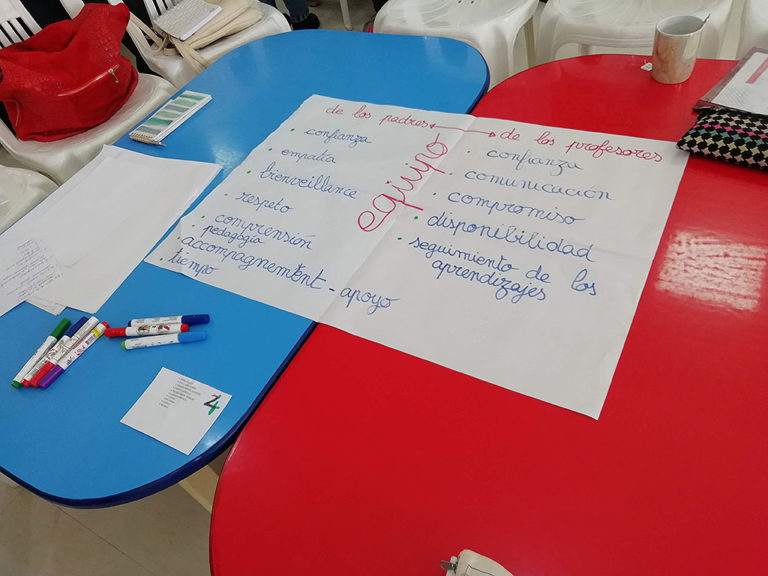 de los padres
confianza
empatía
bienveillance
respeto
comprensión
pedagogía
accompagnement - apoyo
tiempo
equipo
de los profesores
confianza
comunicación
compromiso
disponibilidad
seguimiento de los
aprendizajes
24